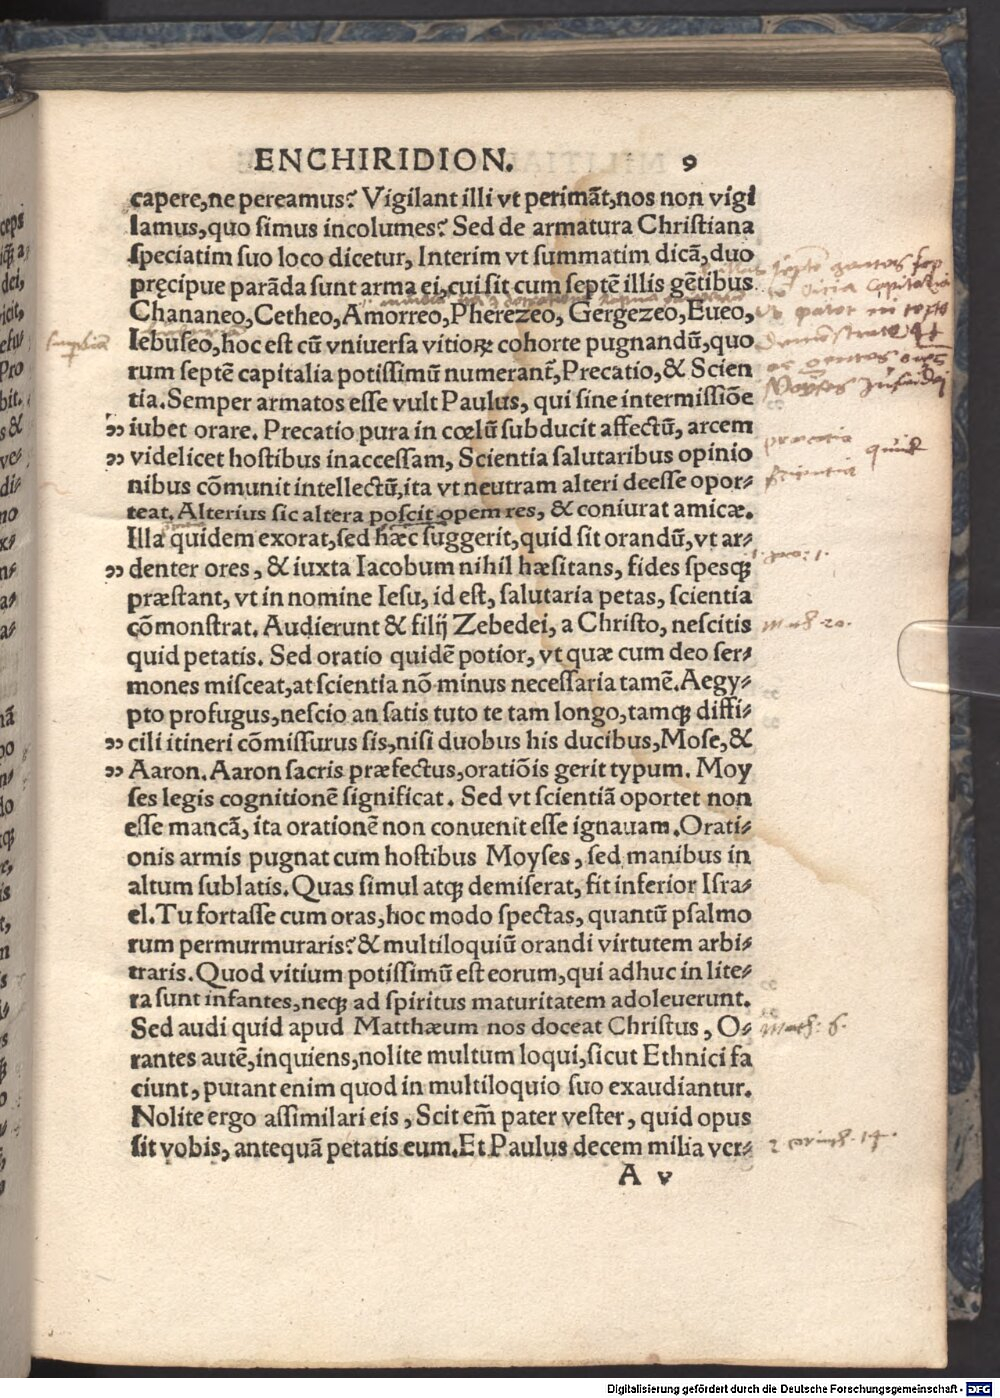 ENCHIRIDION. 9
capere,ne pereamus? Vigilant illi vt perimāt,nos non vigi
lamus,quo simus incolumes? Sed de armatura Christiana
speciatim suo loco dicetur, Interim vt summatim dicā,duo
pręcipue parāda sunt arma ei,cui sit cum septē illis gētibus
Chananeo,Cetheo,Amorreo,Pherezeo,Gergezeo,Eueo,
Iebuseo,hoc est cū vniuersa vitioꝝ cohorte pugnandū,quo
rum septē capitalia potissimū numerant᷑,Precatio,& Scien
tia.Semper armatos esse vult Paulus, qui sine intermissiōe
„ iubet orare. Precatio pura in cœlū subducit affectū, arcem
„ videlicet hostibus inaccessam, Scientia salutaribus opinio
nibus cōmunit intellectū,ita vt neutram alteri deesse opor⸗
teat, Alterius sic altera poscit opem res, & coniurat amicæ.
Illa quidem exorat,sed hæc suggerit,quid sit orandū,vt ar⸗
„ denter ores, & iuxta Iacobum nihil hæsitans, fides spesq̃
præstant, vt in nomine Iesu, id est, salutaria petas, scientia
cōmonstrat. Audierunt & filij Zebedei, a Christo, nescitis
quid petatis. Sed oratio quidē potior, vt quæ cum deo ser⸗
mones misceat,at scientia nō minus necessaria tamē.Aegy⸗
pto profugus,nescio an satis tuto te tam longo,tamq̃ diffi⸗
„ cili itineri cōmissurus sis,nisi duobus his ducibus,Mose,&
„ Aaron.Aaron sacris præfectus,oratiōis gerit typum. Moy
ses legis cognitionē significat. Sed vt scientiā oportet non
esse mancā, ita orationē non conuenit esse ignauam.Orati⸗
onis armis pugnat cum hostibus Moyses, sed manibus in
altum sublatis.Quas simul atq̃ demiserat, fit inferior Isra⸗
el.Tu fortasse cum oras,hoc modo spectas, quantū psalmo
rum permurmuraris?& multiloquiū orandi virtutem arbi⸗
traris.Quod vitium potissimū est eorum,qui adhuc in lite⸗
ra sunt infantes,neq̃ ad spiritus maturitatem adoleuerunt.
Sed audi quid apud Matthæum nos doceat Christus, O⸗
rantes autē,inquiens,nolite multum loqui,sicut Ethnici fa
ciunt, putant enim quod in multiloquio suo exaudiantur.
Nolite ergo assimilari eis, Scit em̄ pater vester, quid opus
sit vobis, antequā petatis eum.Et Paulus decem milia ver⸗
A v
precatio quid
scientia
math 20.
math: 6.
corinth. 14.
Digitalisierung gefördert durch die Deutsche Forschungsgemeinschaft - DFG